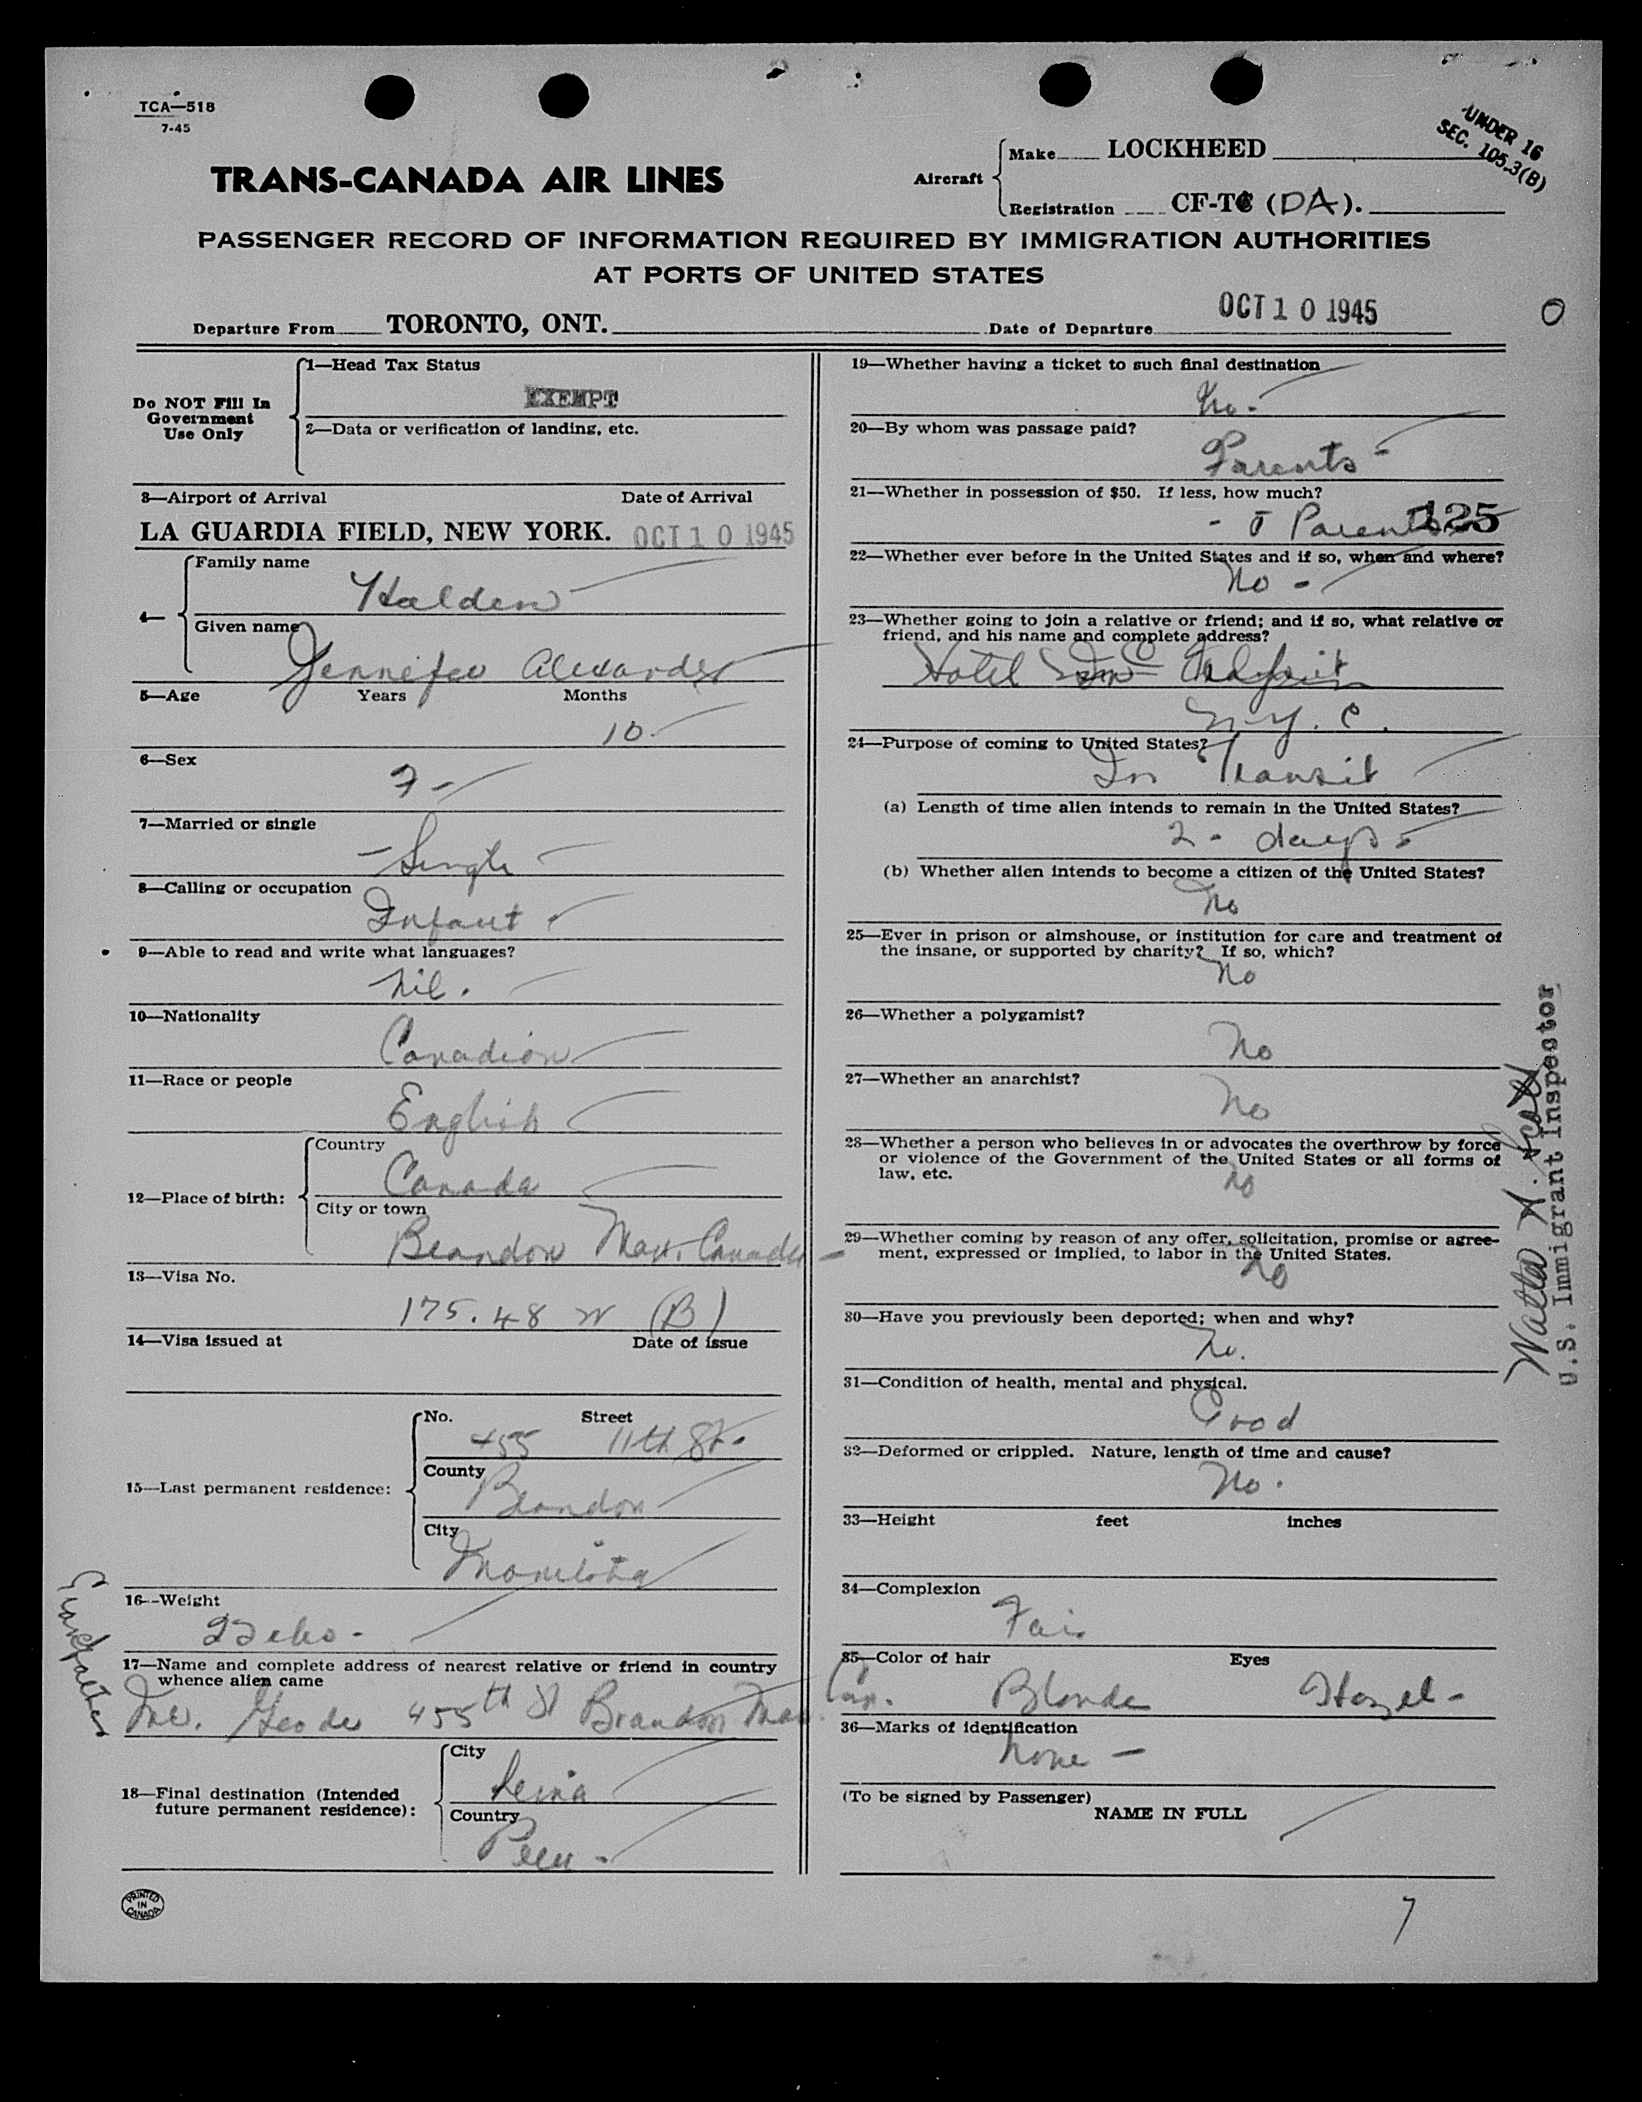 TCA—518
7-45
UNDER 16
SEC. 105.3(B)
TRANS-CANADA AIR LINES
Aircraft
Make LOCKHEED
Registration CF-TC (DA).
PASSENGER RECORD OF INFORMATION REQUIRED BY IMMIGRATION AUTHORITIES
AT PORTS OF UNITED STATES
Departure From TORONTO, ONT. Date of Departure OCT 10 1945
O
Do NOT Fill In
Government
Use Only
1—Head Tax Status
EXEMPT
2—Data or verification of landing, etc.
3—Airport of Arrival Date of Arrival
LA GUARDIA FIELD, NEW YORK. OCT 10 1945
4—
Family name
Halden
Given name
Jennifer Alexander
5—Age Years Months
10
6—Sex
F -
7—Married or single
- Single
8—Calling or occupation
Infant -
9—Able to read and write what languages?
Nil.
10—Nationality
Canadian
11—Race or people
English
12—Place of birth:
Country
Canada
City or town
Brandon Man. Canada -
13—Visa No.
175.48 (B)
14—Visa issued at Date of issue
15—Last permanent residence:
No. Street
455 11th St.
County
Brandon
City
Manitoba
16—Weight
22 lbs -
Grandfather
17—Name and complete address of nearest relative or friend in country
whence alien came
455 th St Brandon Man. Can.
18—Final destination (Intended
future permanent residence):
City
Lima
Country
Peru -
PRINTED
IN
CANADA
19—Whether having a ticket to such final destination
No -
20—By whom was passage paid?
Parents -
21—Whether in possession of $50. If less, how much?
- Parents 125
22—Whether ever before in the United States and if so, when and where?
No -
23—Whether going to join a relative or friend; and if so, what relative or
friend, and his name and complete address?
Hotel
N.Y.C.
24—Purpose of coming to United States?
In Transit
(a) Length of time alien intends to remain in the United States?
2 - days -
(b) Whether alien intends to become a citizen of the United States?
No
25—Ever in prison or almshouse, or institution for care and treatment of
the insane, or supported by charity? If so, which?
No
26—Whether a polygamist?
No
27—Whether an anarchist?
No
28—Whether a person who believes in or advocates the overthrow by force
or violence of the Government of the United States or all forms of
law, etc.
No
29—Whether coming by reason of any offer, solicitation, promise or agree-
ment, expressed or implied, to labor in the United States.
No
30—Have you previously been deported; when and why?
No.
31—Condition of health, mental and physical.
Good
32—Deformed or crippled. Nature, length of time and cause?
No.
33—Height feet inches
34—Complexion
Fair
35—Color of hair Eyes
Blonde Hazel -
36—Marks of identification
None -
(To be signed by Passenger)
NAME IN FULL
7
Walter A. Scott
U.S. Immigrant Inspector